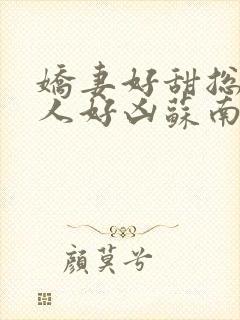 嬌妻好甜总
人好凶蘇南
顔莫兮